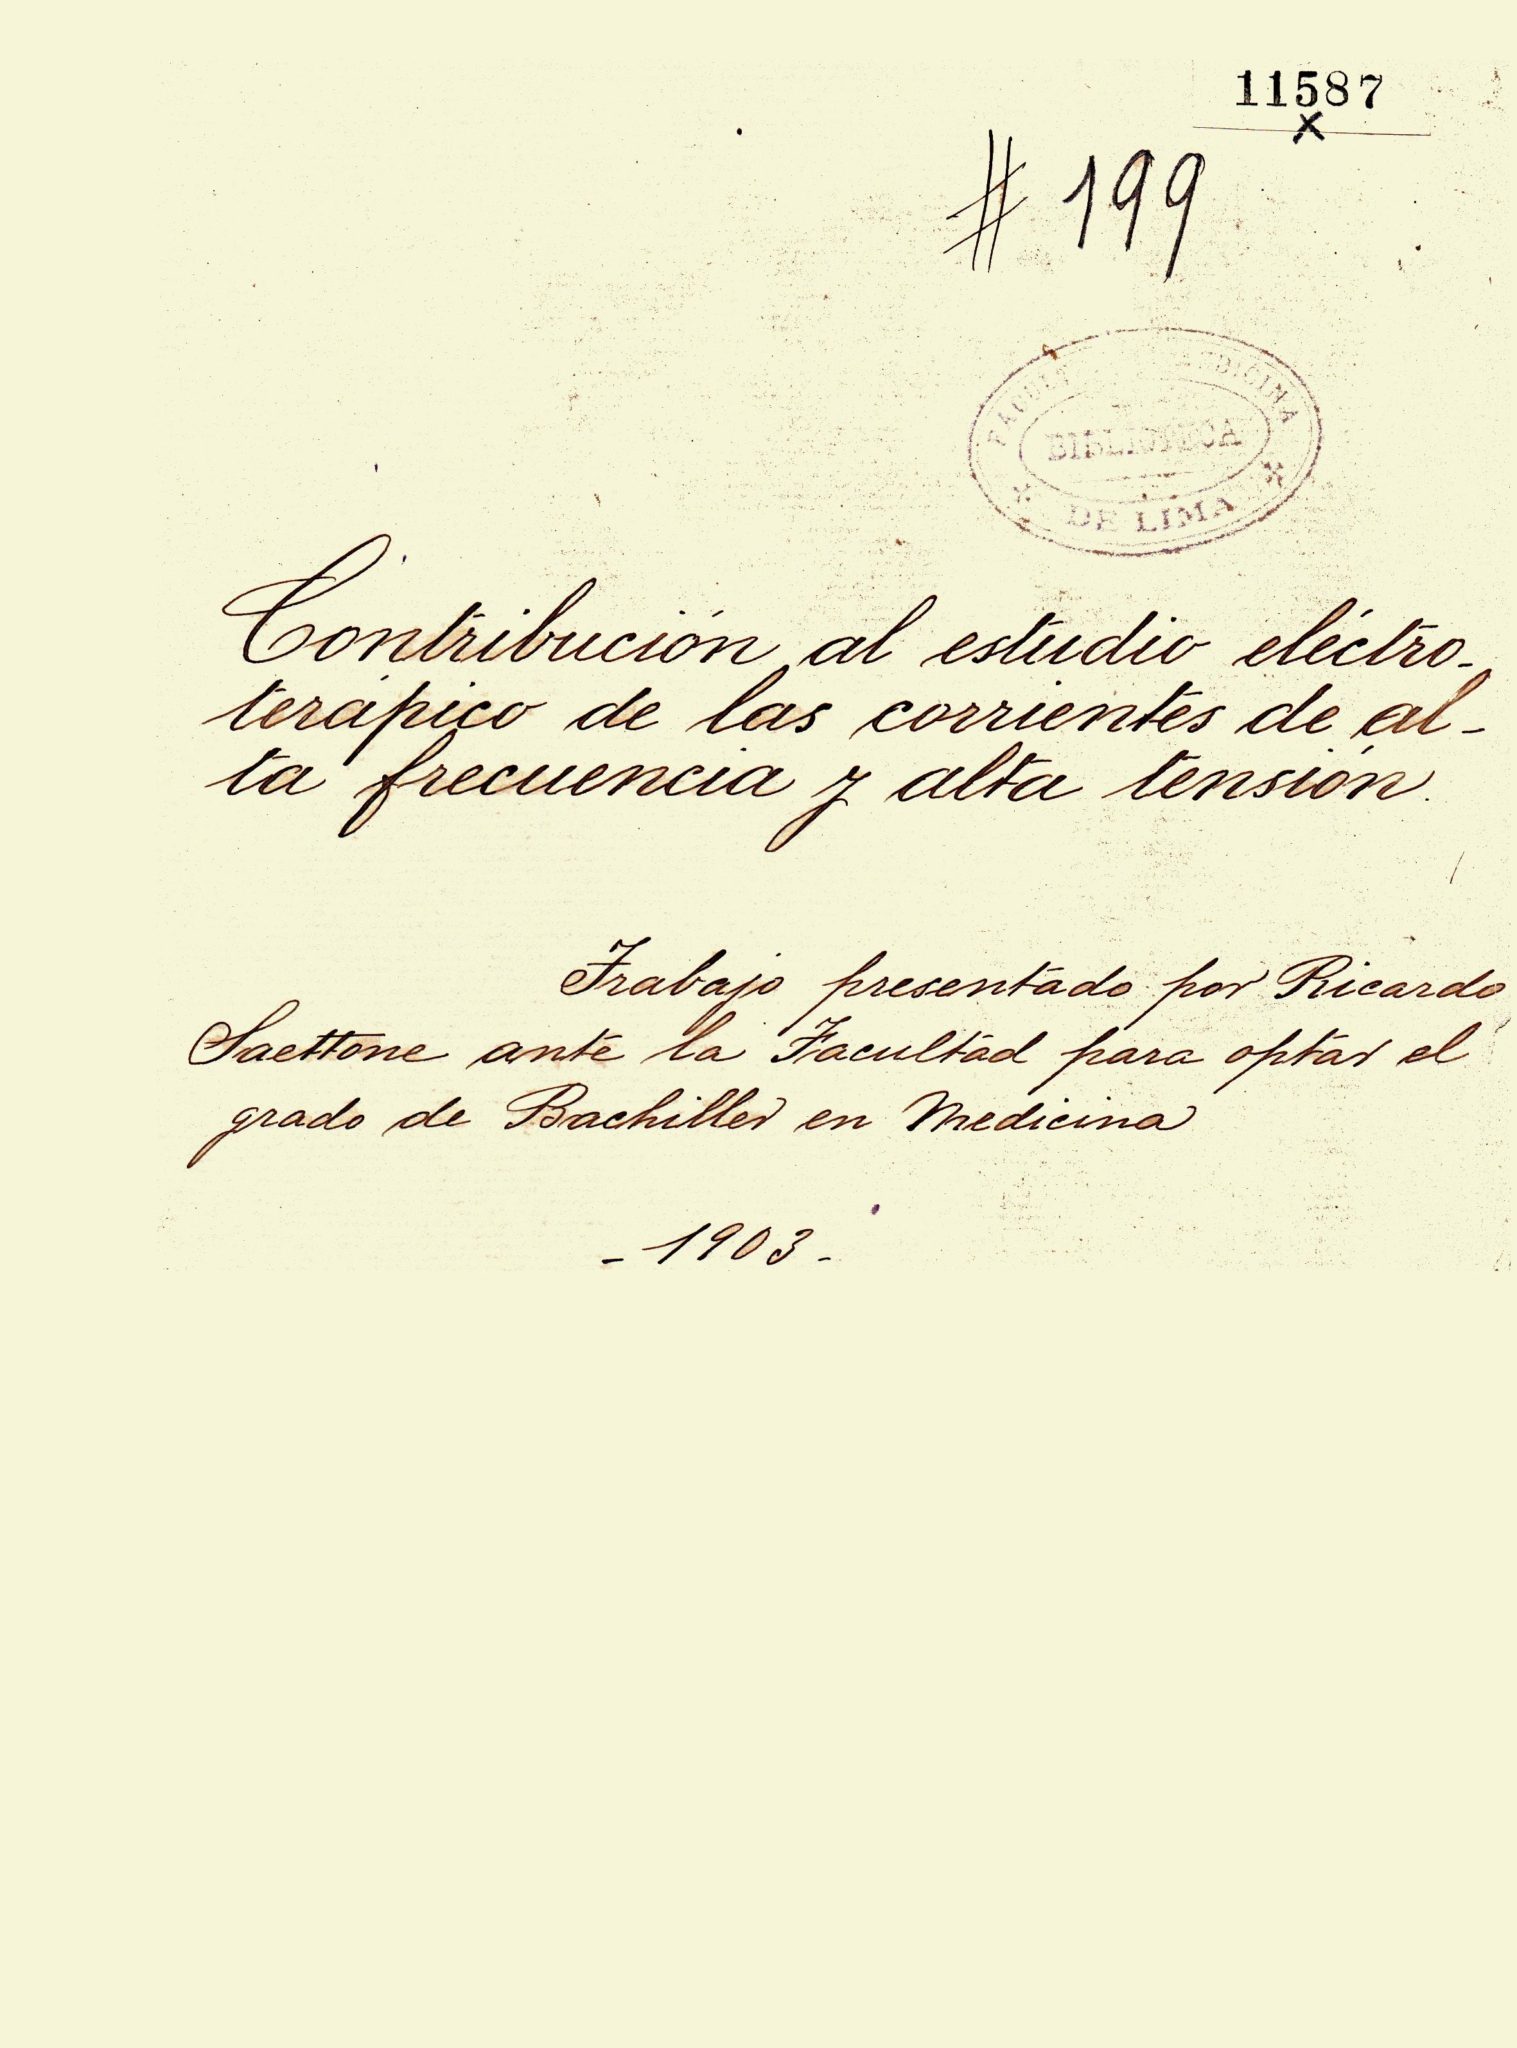 11587
# 199
FACULTAD DE MEDICINA
BIBLIOTECA
DE LIMA
Contribución al estudio eléctro-
terápico de las corrientes de al-
ta frecuencia y alta tensión.
Trabajo presentado por Ricardo
Saettone ante la Facultad para optar el
grado de Bachiller en Medicina
- 1903 -